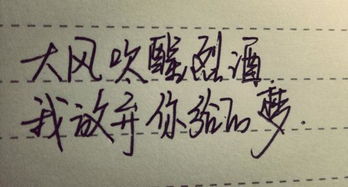 大风吹醒烈酒
我放弃你给的梦.